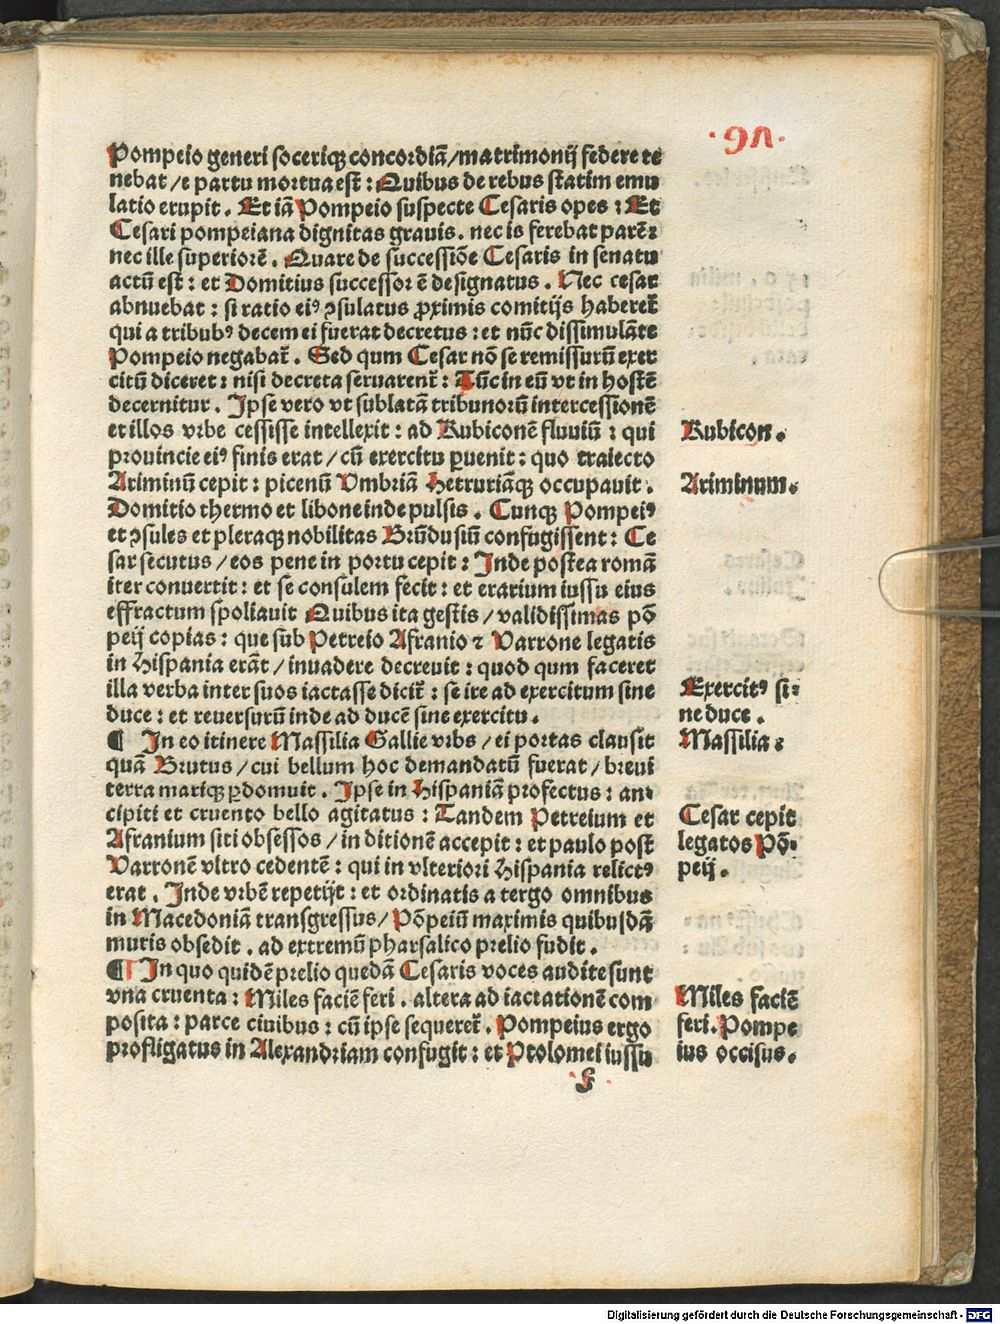 ·91·
Pompeio generi soceriqꝫ concordiā/matrimonij federe te
nebat/e partu mortua est : Quibus de rebus statim emu
latio erupit . Et iā Pompeio suspecte Cesaris opes : Et
Cesari pompeiana dignitas grauis . nec is ferebat parē:
nec ille superiorē . Quare de successiōe Cesaris in senatu
actū est : et Domitius successor ē designatus . Nec cesar
abnuebat : si ratio eiꝰ ↄsulatus ꝓximis comitijs haberet᷑
qui a tribubꝰ decem ei fuerat decretus : et nūc dissimulāte
Pompeio negabat᷑ . Sed qum Cesar nō se remissurū exer
citū diceret : nisi decreta seruarent᷑ : Tūc in eū vt in hostē
decernitur . Ipse vero vt sublatā tribunorū intercessionē
et illos vrbe cessisse intellexit : ad Rubiconē fluuiū : qui
prouincie eiꝰ finis erat/cū exercitu ꝑuenit : quo traiecto
Ariminū cepit : picenū Vmbriā Hetruriāqꝫ occupauit .
Domitio thermo et libone inde pulsis . Cunqꝫ Pompeiꝰ
et ↄsules et pleraqꝫ nobilitas Brūdusiū confugissent : Ce
sar secutus/eos pene in portu cepit : Inde postea romā
iter conuertit : et se consulem fecit : et erarium iussu eius
effractum spoliauit Quibus ita gestis/validissimas pō
peij copias : que sub Petreio Afranio ⁊ Varrone legatis
in Hispania erāt/inuadere decreuit : quod qum faceret
illa verba inter suos iactasse dicit᷑ : se ire ad exercitum sine
duce : et reuersurū inde ad ducē sine exercitu .
¶ In eo itinere Massilia Gallie vrbs/ei portas clausit
quā Brutus/cui bellum hoc demandatū fuerat/breui
terra mariqꝫ ꝑdomuit . Ipse in Hispaniā profectus : an-
cipiti et cruento bello agitatus : Tandem Petreium et
Afranium siti obsessos/in ditionē accepit : et paulo post
Varronē vltro cedentē : qui in vlteriori Hispania relictꝰ
erat . Inde vrbē repetijt : et ordinatis a tergo omnibus
in Macedoniā transgressus/Pōpeiū maximis quibusdā
muris obsedit . ad extremū pharsalico prelio fudit .
¶ In quo quidē prelio quedā Cesaris voces audite sunt
vna cruenta : Miles faciē feri . altera ad iactationē com
posita : parce ciuibus : cū ipse sequeret᷑ . Pompeius ergo
profligatus in Alexandriam confugit : et Ptolomei iussu
f
Rubicon .
Ariminum .
Exercitꝰ si-
ne duce .
Massilia :
Cesar cepit
legatos Pō-
peij .
Miles faciē
feri . Pompe
ius occisus .
Digitalisierung gefördert durch die Deutsche Forschungsgemeinschaft - DFG